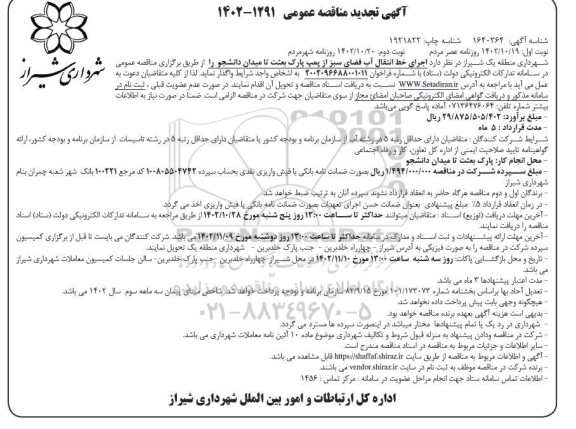 آگهی تجدید مناقصه عمومی ۱۲۹۱-۱۴۰۲
شهرداری شیراز
شناسه آگهی: ۱۶۴۰۳۶۴ شناسه چاپ: ۱۹۲۱۸۲۲
نوبت اول: ۱۴۰۲/۱۰/۱۹ روزنامه عصر مردم نوبت دوم: ۱۴۰۲/۱۰/۲۰ روزنامه شهرمردم
شهرداری منطقه یک شیراز در نظر دارد اجرای خط انتقال آب فضای سبز از پمپ پارک بعثت تا میدان دانشجو را از طریق برگزاری مناقصه عمومی
در سامانه تدارکات الکترونیکی دولت (ستاد) با شماره فراخوان ۲۰۰۲۰۹۶۶۸۸۰۰۱۰۱۱ به اشخاص واجد شرایط واگذار نماید. لذا از کلیه متقاضیان دعوت به
عمل می آید با مراجعه به آدرس WWW.Setadiran.ir نسبت به دریافت اسناد مناقصه و تحویل آن اقدام نمایند. در صورت عدم عضویت قبلی ، ثبت نام در
سامانه مذکور و دریافت گواهی امضای الکترونیکی صاحبان امضای مجاز از سوی متقاضیان جهت شرکت در مناقصه الزامی است. ضمنا در صورت نیاز به اطلاعات
بیشتر شماره تلفن: ۰۷۱۳۶۴۷۶۰۶۴ آماده پاسخ گویی می‌باشد.
- مبلغ برآورد: ۲۹/۸۷۵/۵۰۵/۴۰۲ ریال می باشد.
- مدت قرارداد: ۵ ماه
- شرایط شرکت کنندگان : متقاضیان دارای حداقل رتبه ۵ در رشته آب از سازمان برنامه و بودجه کشور یا متقاضیان دارای حداقل رتبه ۵ در رشته تاسیسات از سازمان برنامه و بودجه کشور، ارائه
گواهینامه تایید صلاحیت ایمنی از اداره کل تعاون، کار و رفاه اجتماعی
- محل انجام کار: پارک بعثت تا میدان دانشجو
- مبلغ سپرده شرکت در مناقصه ۱/۴۹۴/۰۰۰/۰۰۰ ریال بصورت ضمانت نامه بانکی یا فیش واریزی نقدی بحساب سپرده ۱۰۰۸۰۵۵۰۴۷۴۲ کد مرجع ۱۰۰۲۳۱ بانک شهر شعبه چمران بنام
شهرداری شیراز
- برندگان اول و دوم مناقصه هرگاه حاضر به انعقاد قرارداد نشوند سپرده آنان به ترتیب ضبط خواهد شد.
- در زمان انعقاد قرارداد ۵٪ مبلغ پیشنهادی بعنوان ضمانت حسن اجرای تعهدات بصورت ضمانت نامه بانکی یا فیش واریزی اخذ می گردد.
- آخرین مهلت دریافت (توزیع) اسناد : متقاضیان میتوانند حداکثر تا ساعت ۱۳:۰۰ روز پنج شنبه مورخ ۱۴۰۲/۱۰/۲۸ از طریق مراجعه به سامانه تدارکات الکترونیکی دولت (ستاد) اسناد
مناقصه را دریافت نمایند.
- آخرین مهلت ارائه پیشنهادات و ثبت اسناد و مدارک در سامانه حداکثر تا ساعت ۱۳:۰۰ روز دوشنبه مورخ ۱۴۰۲/۱۱/۰۹ می باشد شرکت کنندگان می بایست تا قبل از برگزاری کمیسیون
سپرده شرکت در مناقصه را به صورت فیزیکی به آدرس شیراز - چهارراه خلدبرین - جنب پارک خلدبرین - شهرداری منطقه یک تحویل نمایند.
- تاریخ و محل بازگشایی پاکات: روز سه شنبه ساعت ۱۳:۰۰ مورخ ۱۴۰۲/۱۱/۱۰ در محل شیراز چهارراه خلدبرین جنب پارک خلدبرین- سالن جلسات کمیسیون معاملات شهرداری شیراز
می باشد.
- مدت اعتبار پیشنهادها ۳ ماه می باشد.
- تعدیل آحاد بها براساس بخشنامه شماره ۱۰۱/۱۷۳۰۷۳ مورخ ۸۲/۹/۱۵ سازمان برنامه و بودجه پرداخت خواهد شد. شاخص مبنای پیمان سه ماهه سوم سال ۱۴۰۲ می باشد.
- هیچگونه وجهی بابت پیش پرداخت داده نخواهد شد.
- بدیهی است هزینه آگهی بعهده برنده مناقصه خواهد بود.
- شهرداری در رد یک یا تمام پیشنهادها مختار میباشد در اینصورت سپرده ها مسترد می گردد.
- شرکت در مناقصه ودادن پیشنهاد به منزله قبول شروط و تکالیف شهرداری موضوع ماده ۱۰ آئین نامه معاملات شهرداری می باشد.
- سایر اطلاعات و جزئیات مربوط به مناقصه در اسناد مناقصه مندرج است.
- آگهی و اطلاعات مربوط به مناقصه از طریق سایت https://shaffaf.shiraz.ir قابل مشاهده می باشد.
- برنده شرکت در مناقصه موظف به ثبت نام در سایت vendor.shiraz.ir می باشند.
- اطلاعات تماس سامانه ستاد جهت انجام مراحل عضویت در سامانه : مرکز تماس : ۱۴۵۶
۰۲۱-۸۸۳۴۹۶۷۰-۵
اداره کل ارتباطات و امور بین الملل شهرداری شیراز